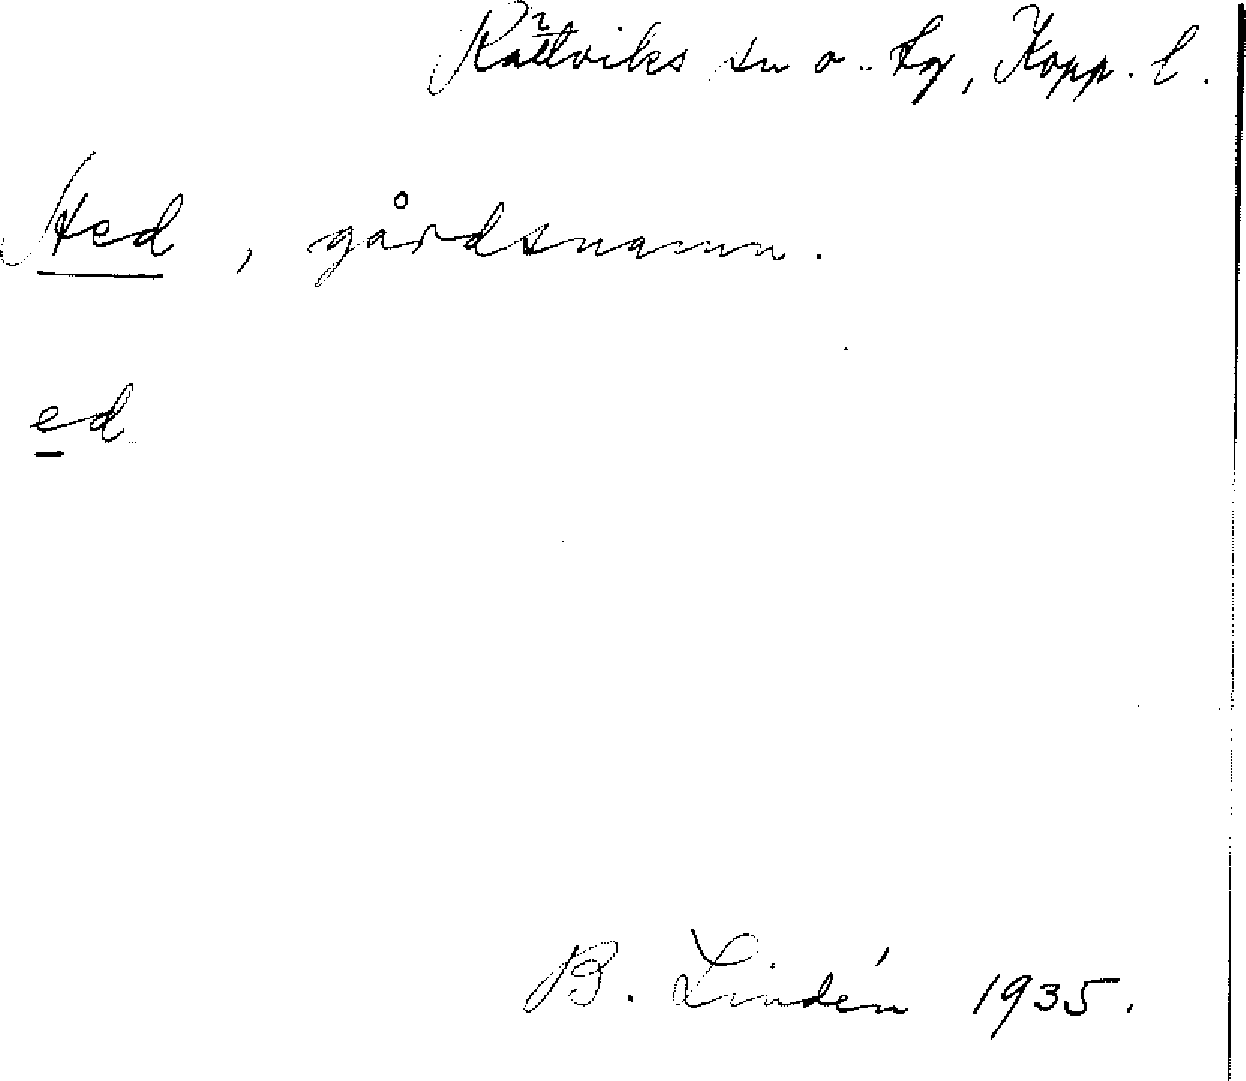 Rättviks sn o. tg, Kopp. l.
Hed, gårdsnamn.
ed
B. Lindén 1935.